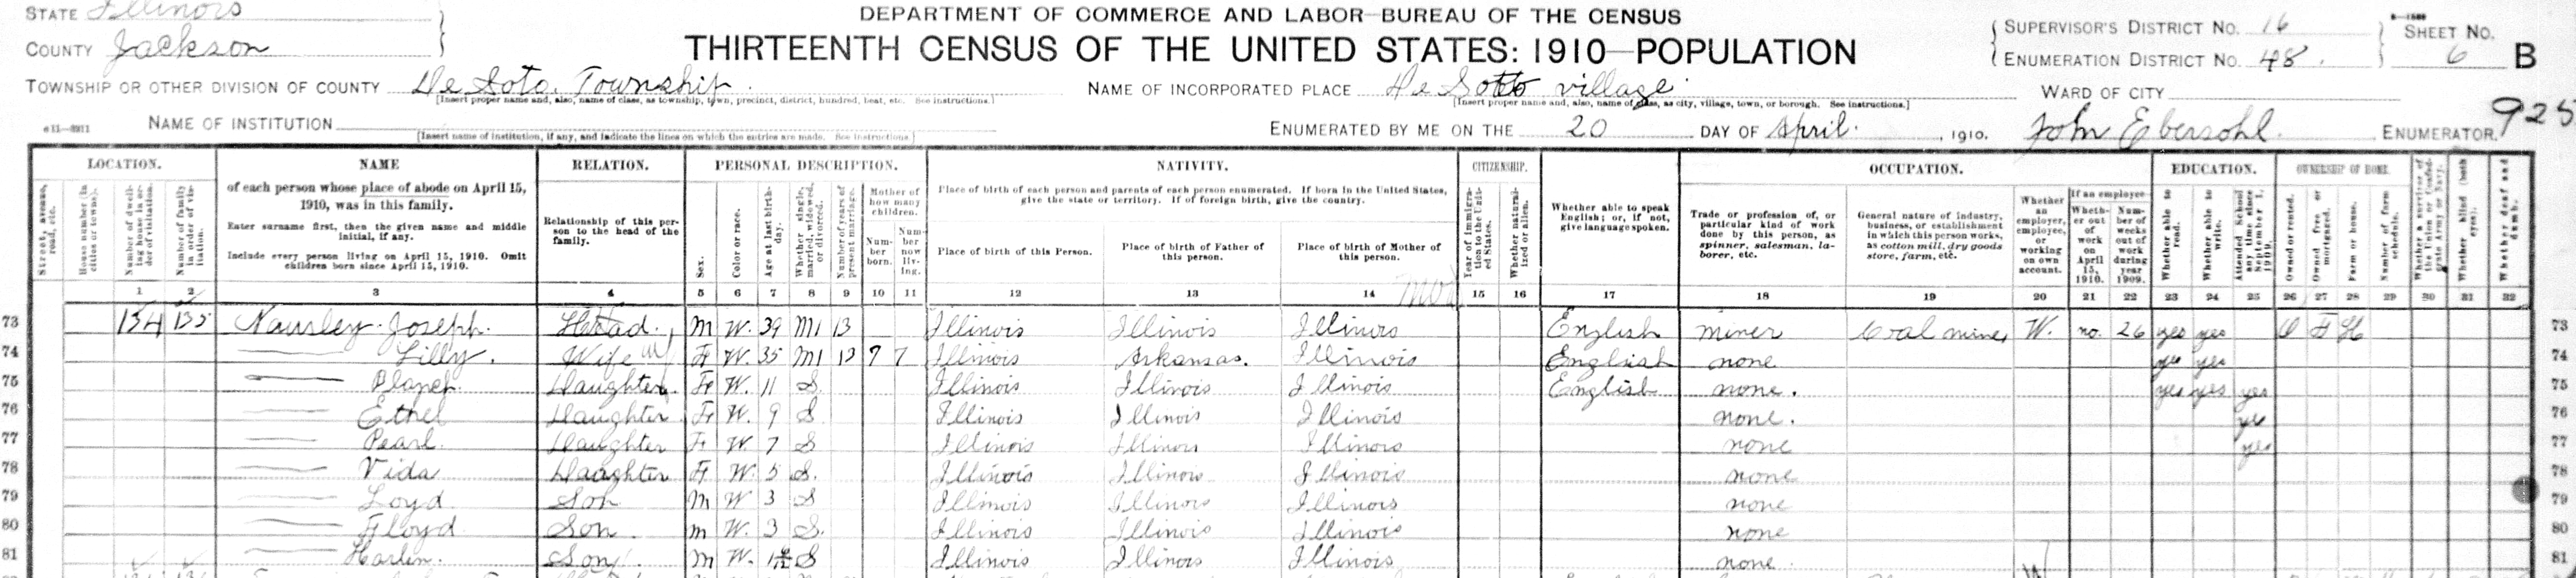 STATE Illinois
COUNTY Jackson
DEPARTMENT OF COMMERCE AND LABOR—BUREAU OF THE CENSUS
THIRTEENTH CENSUS OF THE UNITED STATES: 1910—POPULATION
SUPERVISOR'S DISTRICT No. 16
ENUMERATION DISTRICT No. 48.
SHEET No. 6 B
TOWNSHIP OR OTHER DIVISION OF COUNTY De Soto Township.
[Insert proper name and, also, name of class, as township, town, precinct, district, hundred, beat, etc. See instructions.]
NAME OF INCORPORATED PLACE De Sotto village
[Insert proper name and, also, name of class, as city, village, town, or borough. See instructions.]
WARD OF CITY
NAME OF INSTITUTION
[Insert name of institution, if any, and indicate the lines on which the entries are made. See instructions.]
ENUMERATED BY ME ON THE 20 DAY OF April. , 1910. John Ebersohl. ENUMERATOR.
LOCATION. NAME RELATION. PERSONAL DESCRIPTION. NATIVITY. CITIZENSHIP. OCCUPATION. EDUCATION. OWNERSHIP OF HOME.
Street, avenue, road, etc.
House number (in cities or towns).
Number of dwelling house in order of visitation.
Number of family in order of visitation.
of each person whose place of abode on April 15, 1910, was in this family.
Enter surname first, then the given name and middle initial, if any.
Include every person living on April 15, 1910. Omit children born since April 15, 1910.
Relationship of this person to the head of the family.
Sex.
Color or race.
Age at last birthday.
Whether single, married, widowed, or divorced.
Number of years of present marriage.
Mother of how many children.
Number born.
Number now living.
Place of birth of each person and parents of each person enumerated. If born in the United States, give the state or territory. If of foreign birth, give the country.
Place of birth of this Person.
Place of birth of Father of this person.
Place of birth of Mother of this person.
Year of immigration to the United States.
Whether naturalized or alien.
Whether able to speak English; or, if not, give language spoken.
Trade or profession of, or particular kind of work done by this person, as spinner, salesman, laborer, etc.
General nature of industry, business, or establishment in which this person works, as cotton mill, dry goods store, farm, etc.
Whether an employer, employee, or working on own account.
If an employee—
Whether out of work on April 15, 1910.
Number of weeks out of work during year 1909.
Whether able to read.
Whether able to write.
Attended school any time since September 1, 1909.
Owned or rented.
Owned free or mortgaged.
Farm or house.
Number of farm schedule.
Whether a survivor of the Union or Confederate Army or Navy.
Whether blind (both eyes).
Whether deaf and dumb.
1 2 3 4 5 6 7 8 9 10 11 12 13 14 15 16 17 18 19 20 21 22 23 24 25 26 27 28 29 30 31 32
73 134 135 Nausley Joseph. Head M W. 39 M1 13 Illinois Illinois Illinois English miner Coal mines W. no. 26 yes yes O F H 73
74 Lilly. Wife F W. 35 M1 13 7 7 Illinois Arkansas. Illinois English none yes yes 74
75 Blanch Daughter F W. 11 S. Illinois Illinois Illinois English none. yes yes yes 75
76 Ethel Daughter F W. 9 S Illinois Illinois Illinois none. yes 76
77 Pearl Daughter F W. 7 S Illinois Illinois Illinois none yes 77
78 Vida Daughter F W. 5 S. Illinois Illinois Illinois none 78
79 Loyd Son M W 3 S Illinois Illinois Illinois none 79
80 Floyd Son. m W. 3 S. Illinois Illinois Illinois none 80
81 Harlin. Son M W. S Illinois Illinois Illinois none. 81